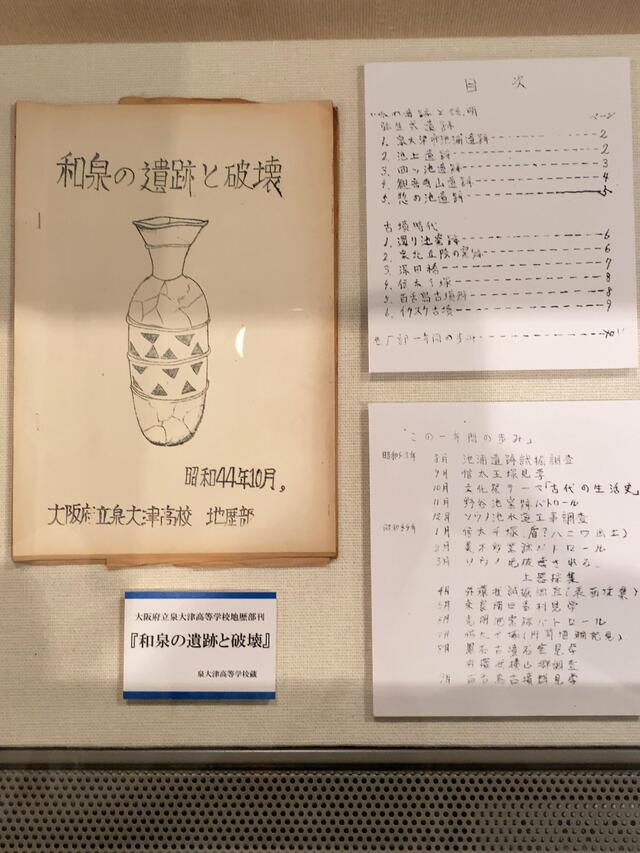 和泉の遺跡と破壊
昭和44年10月。
大阪府立泉大津高校 地歴部
大阪府立泉大津高等学校地歴部刊
『和泉の遺跡と破壊』
泉大津高等学校蔵
目次
ページ
弥生式遺跡
1. 泉大津市池浦遺跡 2
2. 池上遺跡 2
3. 四ッ池遺跡 3
4. 観音寺山遺跡 4
5. 惣の池遺跡 5
古墳時代
1. 濁り池窯跡 6
2. 6
3. 深田橋 7
4. 信太千塚 8
5. 百舌鳥古墳群 8
6. イタスケ古墳 9
「この一年間の歩み」
昭和43年 8月 池浦遺跡試掘調査
9月 信太王塚見学
10月 文化祭テーマ「古代の生活史」
11月 野谷池窯跡パトロール
12月 ソウノ池水道工事調査
昭和44年 1月 信太千塚、盾?ハニワ出土)
2月 窯跡パトロール
3月 ソウノ池破壊される。
土器採集
4月
5月 見学
6月 光明池窯跡パトロール
7月 信太千塚
8月 黒石古墳石室見学
9月 百舌鳥古墳群見学